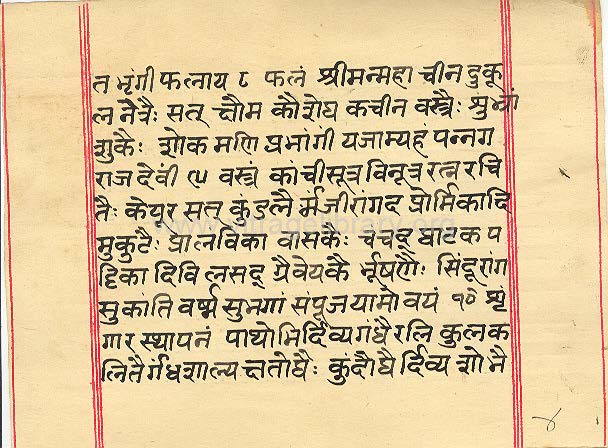 त भृंगी फलाय ८ फलं श्रीमन्महा चीन दुकू
ल नेत्रैः सत् क्षौम कौशेय कचीन वस्त्रैः शुभां
शुकैः शोक मणि प्रभांगी यजाम्यहं पन्नग
राज देवीं ९ वस्त्रं कांचीसूत्र विनूत्न रत्न रचि
तैः केयूर सत् कुंडलै र्मंजीरांगद प्रोर्मिकादि
मुकुटैः प्रालंविका वासकैः चंचद् घाटक प
ट्टिका दिवि लसद् ग्रैवेयकै र्भूषणैः सिंदूरांग
सुकांति वर्ष्म सुभगां संपूजयामो वयं १० श्रृं
गार स्थापनं पाथोभिर्दिव्यगंधैरलि कुलक
लितैर्गंधशाल्यक्षतोघैः कुंदौघै र्दिव्य शोभै
४